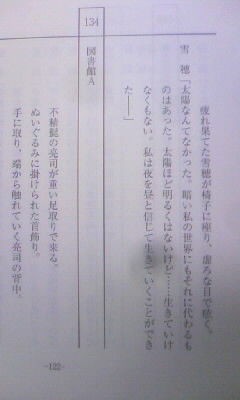 疲れ果てた雪穂が椅子に座り、虚ろな目で聴く。
雪 穂「太陽なんてなかった。暗い私の世界にもそれに代わるも
のはあった。太陽ほど明るくはないけど……生きていけ
なくもない。私は夜を昼と信じて生きていくことができ
た――」
134
図書館A
不精髭の亮司が重い足取りで来る。
ぬいぐるみに掛けられた首飾り。
手に取り、端から触れていく亮司の背中。
-122-